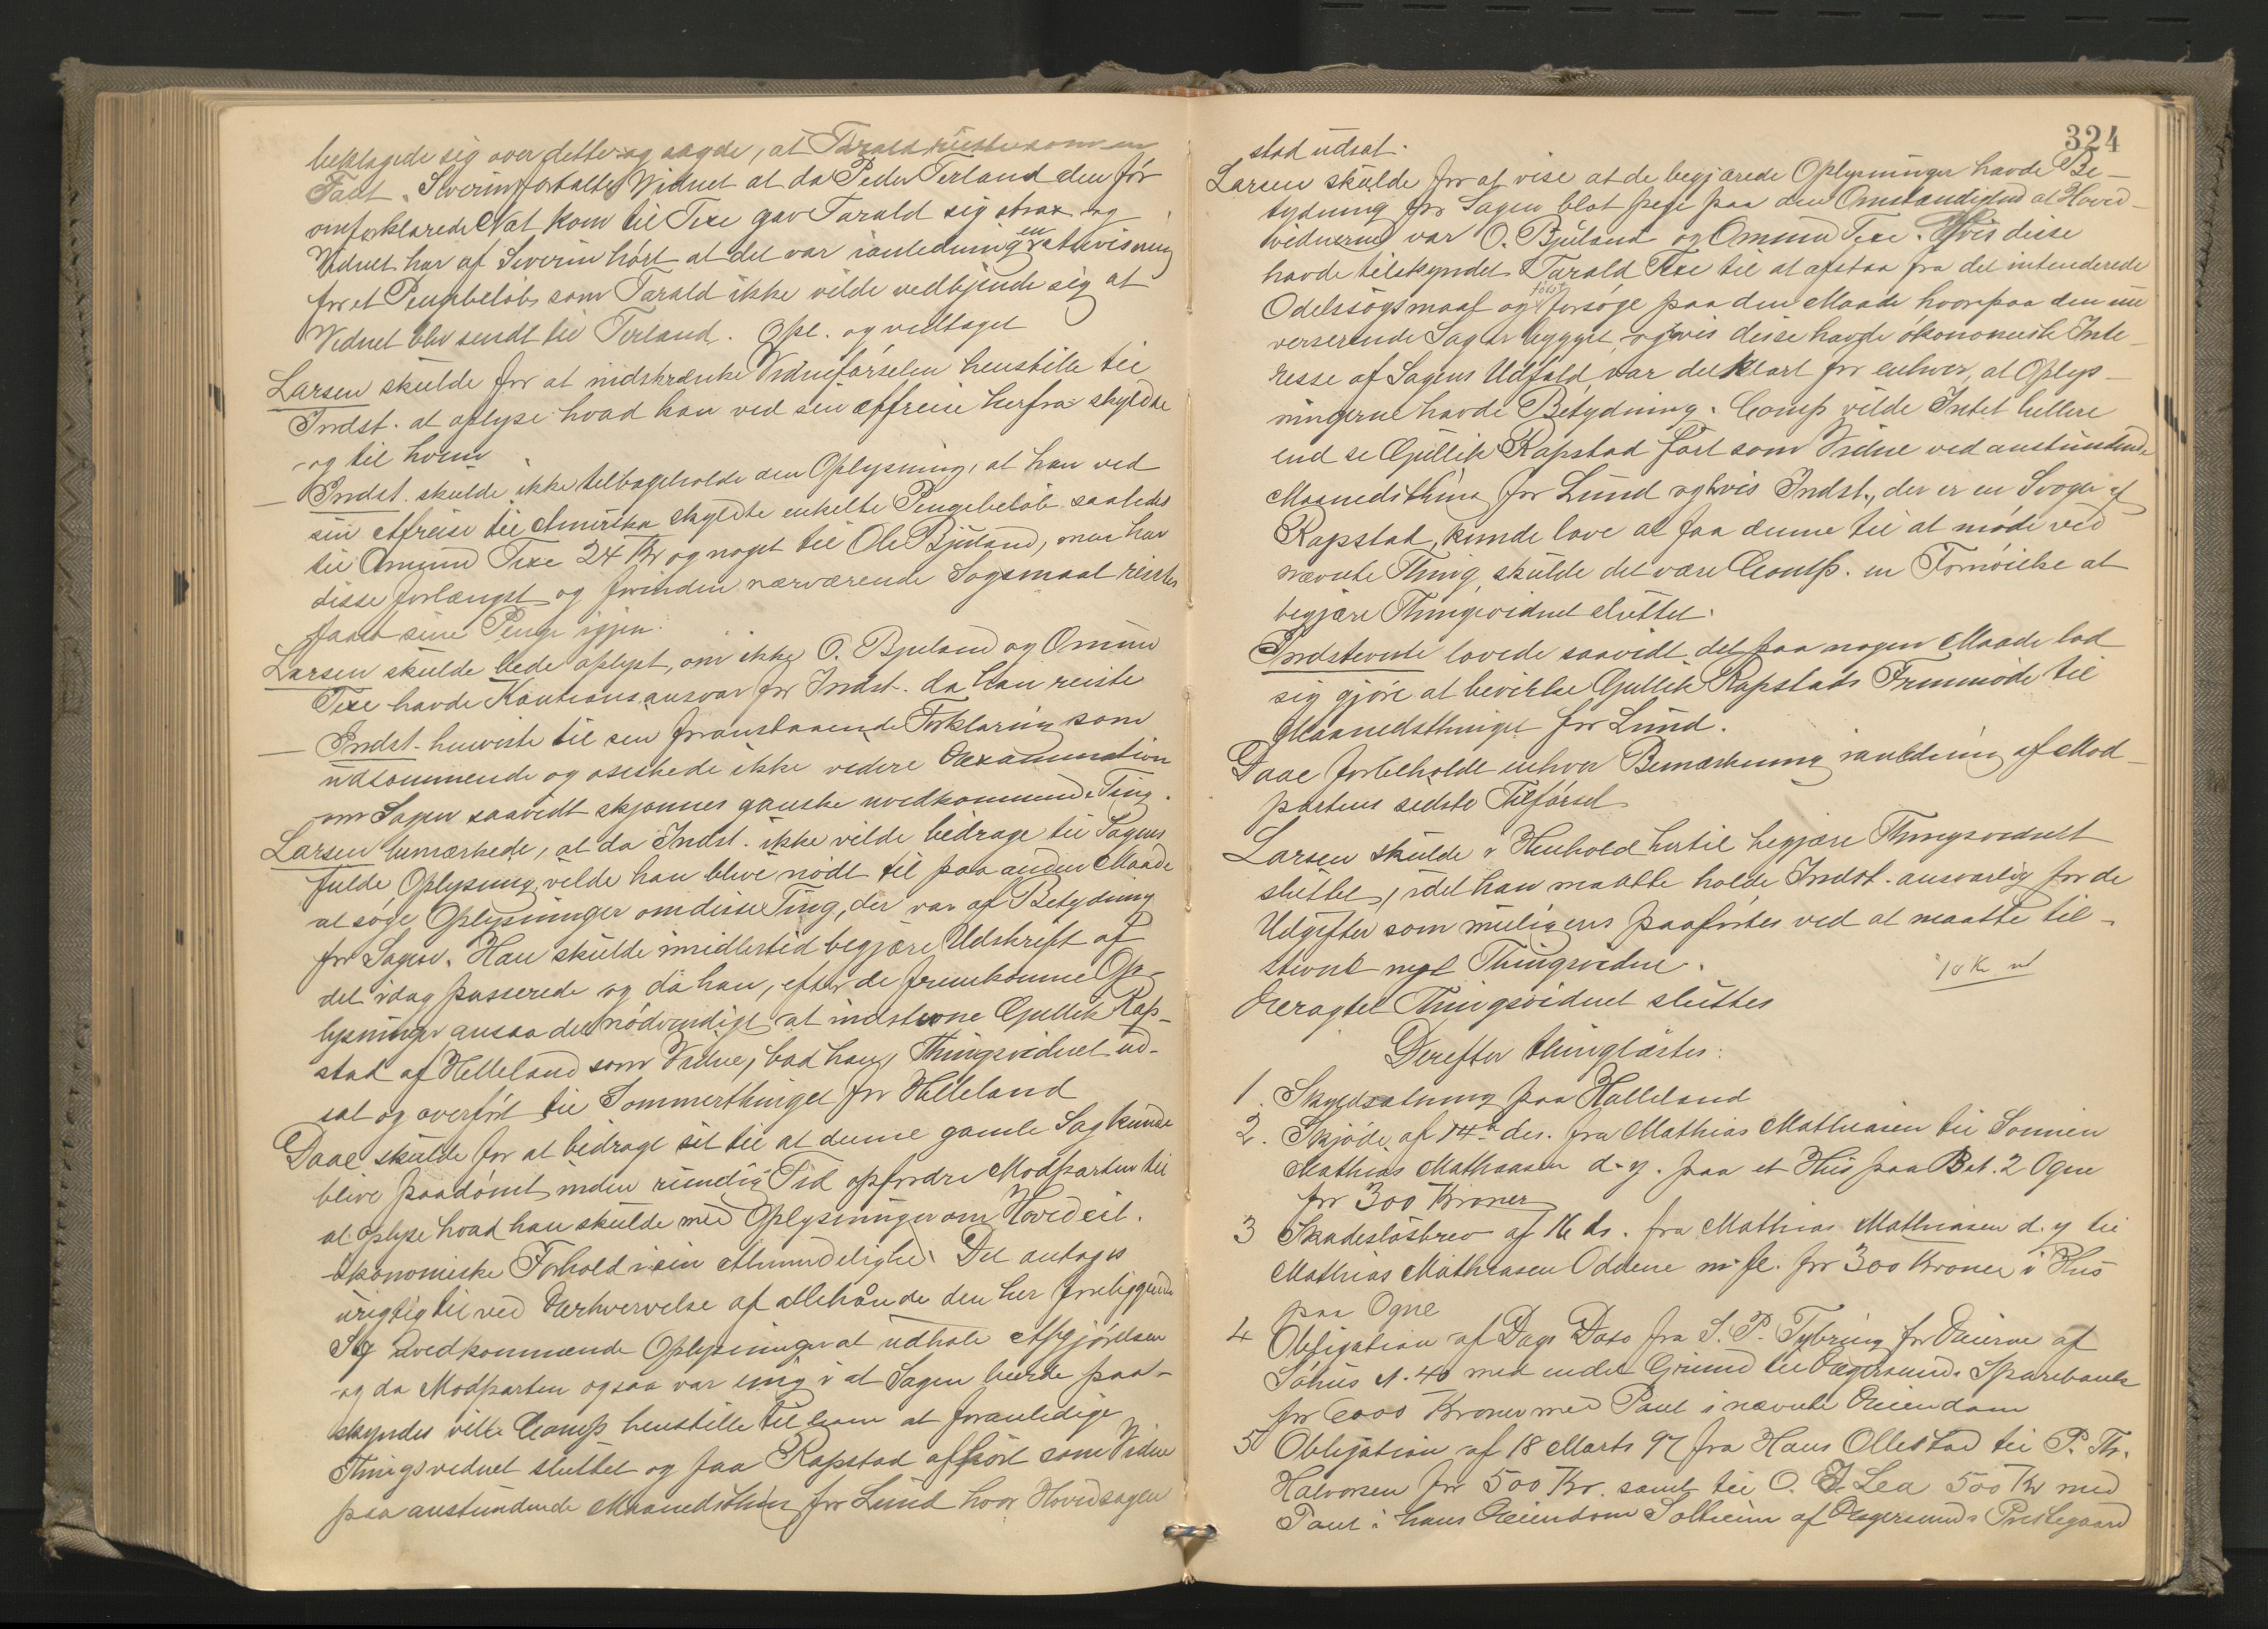 beklagede sig over dette og sagde, at Tarald reiste som en
Fant. Severin fortalte Vidnet at da Peder Terland den før
omforklarede Nat kom til Texe gav Tarald sig strax og
Vidnet har af Severin hørt at det var ianledning en
for et Pengebeløb som Tarald ikke vilde vedkjende sig at
Vidnet blev sendt til Terland. Opl. og vedtaget
Larsen skulde for at indskrænke Vidneførselen henstille til
Indst. at oplyse hvad han ved sin Affreise herfra skyldte
og til hvem
— Indst. skulde ikke tilbageholde den Oplysning, at han ved
sin Afreise til Amerika skyldte enkelte Pengebeløb saaledes
til Omund Texe 24 Kr og noget til Ole Bjuland, men har
disse forlængst og forinden nærværende Søgsmaal reistes
faaet sine Penge igjen.
Larsen skulde bede oplyst, om ikke O. Bjuland og Omund
Texe havde Kautionsansvar for Indst. da han reiste
— Indst. henviste til sin foranstaaende Forklaring som
udtømmende og ønskede ikke videre Examination
om Sagen saavidt skjønnes ganske uvedkommende Ting.
Larsen bemærkede, at da Indst. ikke vilde bidrage til Sagens
fulde Oplysning, vilde han blive nødt til paa anden Maade
at søge Oplysninger om disse Ting, der var af Betydning
for Sagen. Han skulde imidlertid begjære Udskrift af
det idag passerede og da han, efter de fremkomne Op-
lysninger ansaa det nødvendigt at indstevne Gullik Rap-
stad af Helleland som Vidne, bad han Thingsvidnet ud-
sat og overført til Sommerthinget for Helleland
Daae skulde for at bidrage sit til at denne gamle Sag kunde
blive paadømt inden rimelig Tid opfordre Modparten til
at oplyse hvad han skulde med Oplysninger om Hovedcit.
økonomiske Forhold i sin Almindelighed. Det antages
urigtigt ved Erhvervelse af allehaande den her foreliggende
Sag uvedkommende Oplysninger at udhale Afgjørelsen
og da Modparten ogsaa var enig i at Sagen burde paa-
skyndes vilde Comp henstille til ham at foranledige
Thingsvidnet sluttet og faa Rapstad afhørt som Vidne
paa anstundende Maanedsthing for Lund hvor Hovedsagen
324
stod udsat.
Larsen skulde for at vise at de begjærede Oplysninger havde Be-
tydning for Sagen blot pege paa den Omstændighed at Hoved-
vidnerne var O. Bjuland og Omund Texe. Hvis disse
havde tilskyndet Tarald Texe til at afstaa fra det intenderede
Odelssøgsmaal og først forsøge paa den Maade hvorpaa den nu
verserende Sag er bygget, og hvis disse havde økonomiske Inte-
resse af Sagens Udfald, var det klart for enhver, at Oplys-
ningerne havde Betydning. Comp vilde Intet hellere
end se Gullik Rapstad ført som Vidne ved anstundende
Maanedsthing for Lund og hvis Indst., der er en Svoger af
Rapstad, kunde love at faa denne til at møde ved
nævnte Thing, skulde det være Comp. en Fornøielse at
begjære Thingsvidnet sluttet.
Indstevnte lovede saavidt det paa nogen Maade lod
sig gjøre at bevirke Gullik Rapstads Fremmøde til
Maanedsthinget for Lund.
Daae forbeholdt enhver Bemærkning ianledning af Mod-
partens sidste Tilførsel
Larsen skulde i Henhold hertil begjære Thingsvidnet
sluttet, idet han maatte holde Indst. ansvarlig for de
Udgifter som muligens paaførtes ved at maatte til-
stevnt nyt Thingsvidne.
10 Kr
Eragtet Thingsvidnet sluttes
Derefter thinglæstes:
1. Skyldsætning paa Helleland
2. Skjøde af 14de ds. fra Mathias Mathiasen til Sønnen
Mathias Mathiasen d. y. paa et Hus paa Bet. 2 Ogne
for 300 Kroner
3 Skadesløsbrev af 16 ds. fra Mathias Mathiasen d. y til
Mathias Mathiasen Oddene m. fl. for 300 Kroner i Hus
paa Ogne
4 Obligation af Dags Dato fra S. P. Tybring for Eierne af
Søhus N. 40 med underl. Grund til Egersunds Sparebank
for 6000 Kroner med Pant i nævnte Eiendom
5 Obligation af 18 Marts 97 fra Hans Ollestad til P. Th.
Halvorsen for 500 Kr. samt til O. Lea 500 Kr med
Pant i hans Eiendom Solheim af Egersunds Prestegaard